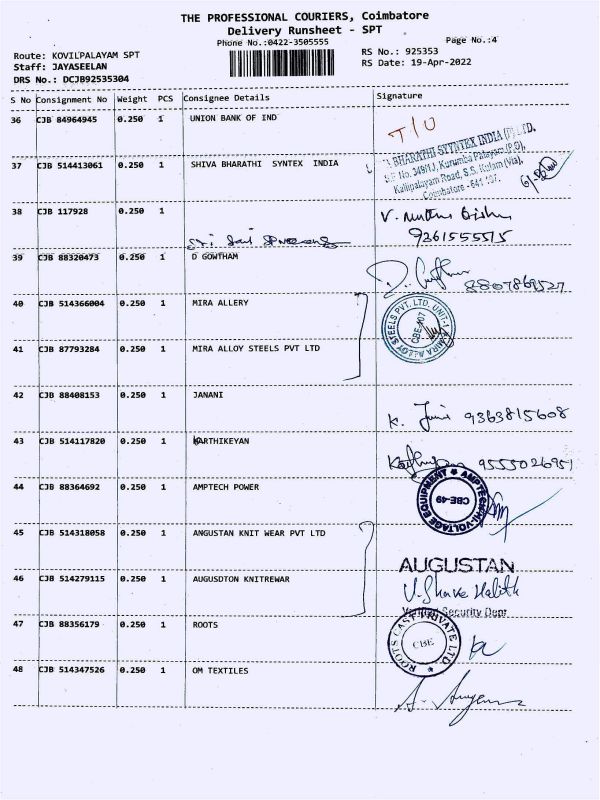 THE PROFESSIONAL COURIERS, Coimbatore
Delivery Runsheet - SPT
Phone No.:0422-3505555
Page No.:4
Route: KOVILPALAYAM SPT
RS No.: 925353
Staff: JAYASEELAN
RS Date: 19-Apr-2022
DRS No.: DCJB92535304
S No Consignment No Weight PCS Consignee Details Signature
36 CJB 84964945 0.250 1 UNION BANK OF IND
T/U
37 CJB 514413061 0.250 1 SHIVA BHARATHI SYNTEX INDIA
BHARATHI SYYNTEX INDIA (P) LTD.
S.F No. 349/1J, Kurumba Palayam (P.O),
Kalipalayam Road, S.S. Kulam (Via),
Coimbatore - 641 107.
38 CJB 117928 0.250 1
V.
9361555515
Sri Sai
39 CJB 88320473 0.250 1 D GOWTHAM
8807869527
40 CJB 514366004 0.250 1 MIRA ALLERY
MIRA ALLOY STEELS PVT. LTD. UNIT-1
CBE-107
41 CJB 87793284 0.250 1 MIRA ALLOY STEELS PVT LTD
42 CJB 88408153 0.250 1 JANANI
K. 9363815608
43 CJB 514117820 0.250 1 KARTHIKEYAN
9555026951
44 CJB 88364692 0.250 1 AMPTECH POWER
AMPTECH HI-VOLTAGE EQUIPMENT
CBE-49
45 CJB 514318058 0.250 1 ANGUSTAN KNIT WEAR PVT LTD
AUGUSTAN
46 CJB 514279115 0.250 1 AUGUSDTON KNITREWAR
Security Dept
47 CJB 88356179 0.250 1 ROOTS
ROOTS CAST PRIVATE LTD.
CBE
48 CJB 514347526 0.250 1 OM TEXTILES